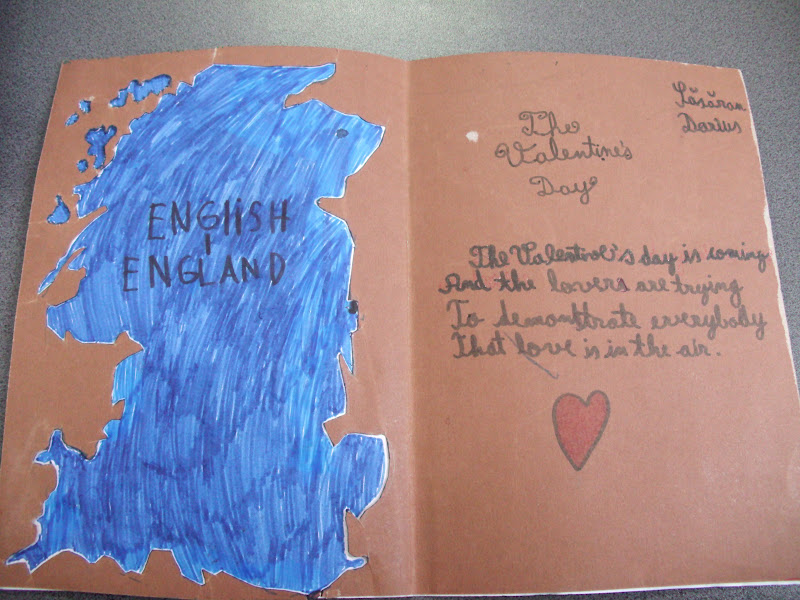 ENGlISH
ENGLAND
Lăsăran
Darius
The
Valentine's
Day
The Valentine's day is coming
And the lovers are trying
To demonttrate everybody
That love is in the air.